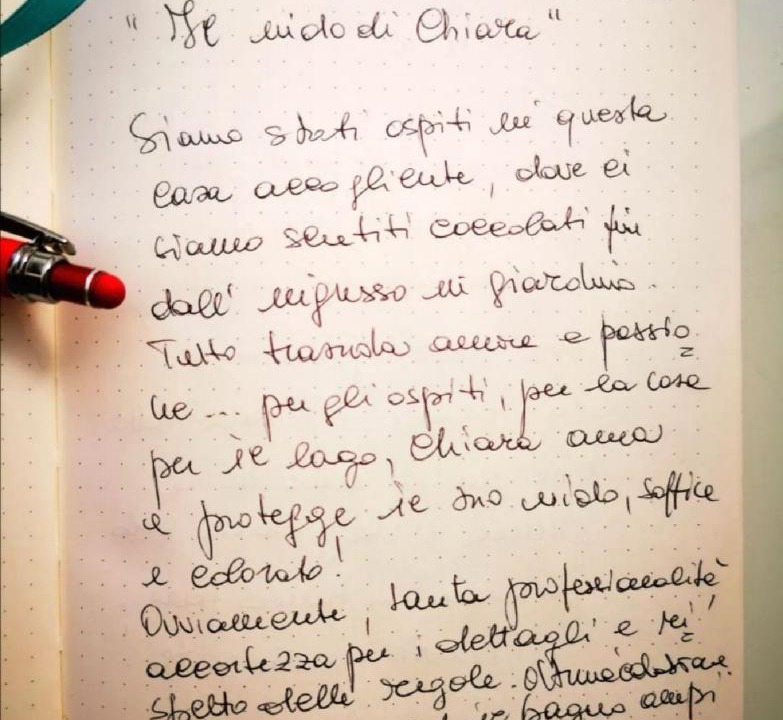 "Il nido di Chiara"
Siamo stati ospiti in questa
casa accogliente, dove ci
siamo sentiti coccolati fin
dall'ingresso in giardino.
Tutto trasuda amore e passio
ne... per gli ospiti, per la casa
per il lago, Chiara ama
e protegge il suo nido, soffice
e colorato!
Ovviamente, tanta professionalità
accortezza per i dettagli e ri
spetto delle regole. Ottima colazione
bagno ampi